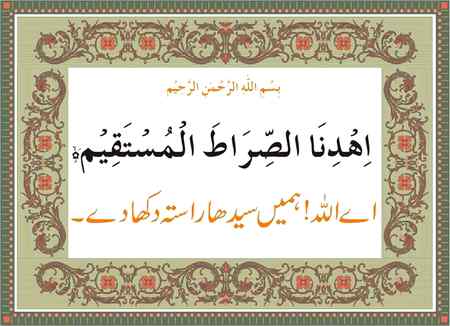 بِسْمِ اللهِ الرَّحْمٰنِ الرَّحِيْمِ
اِهْدِنَا الصِّرَاطَ الْمُسْتَقِيْمَ ۙ
اے اللہ! ہمیں سیدھا راستہ دکھا دے۔